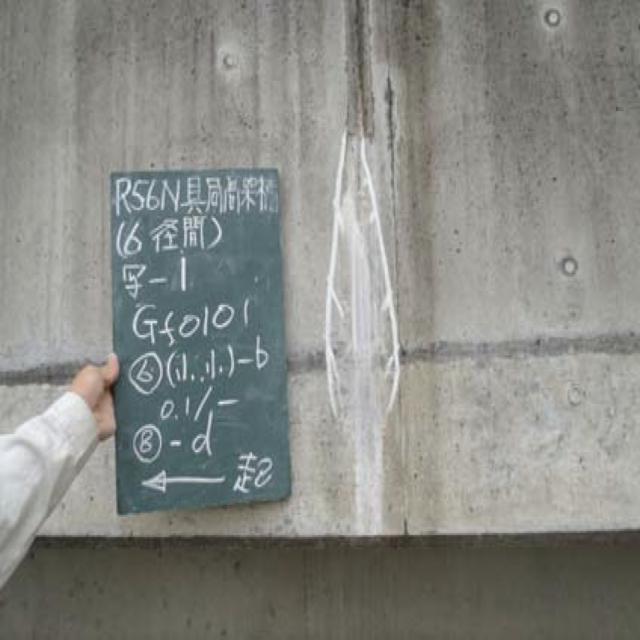 R56N具同高架橋
(6径間)
写-1
Gf0101
⑥(小.小.)-b
0.1/-
⑧-d
← 起